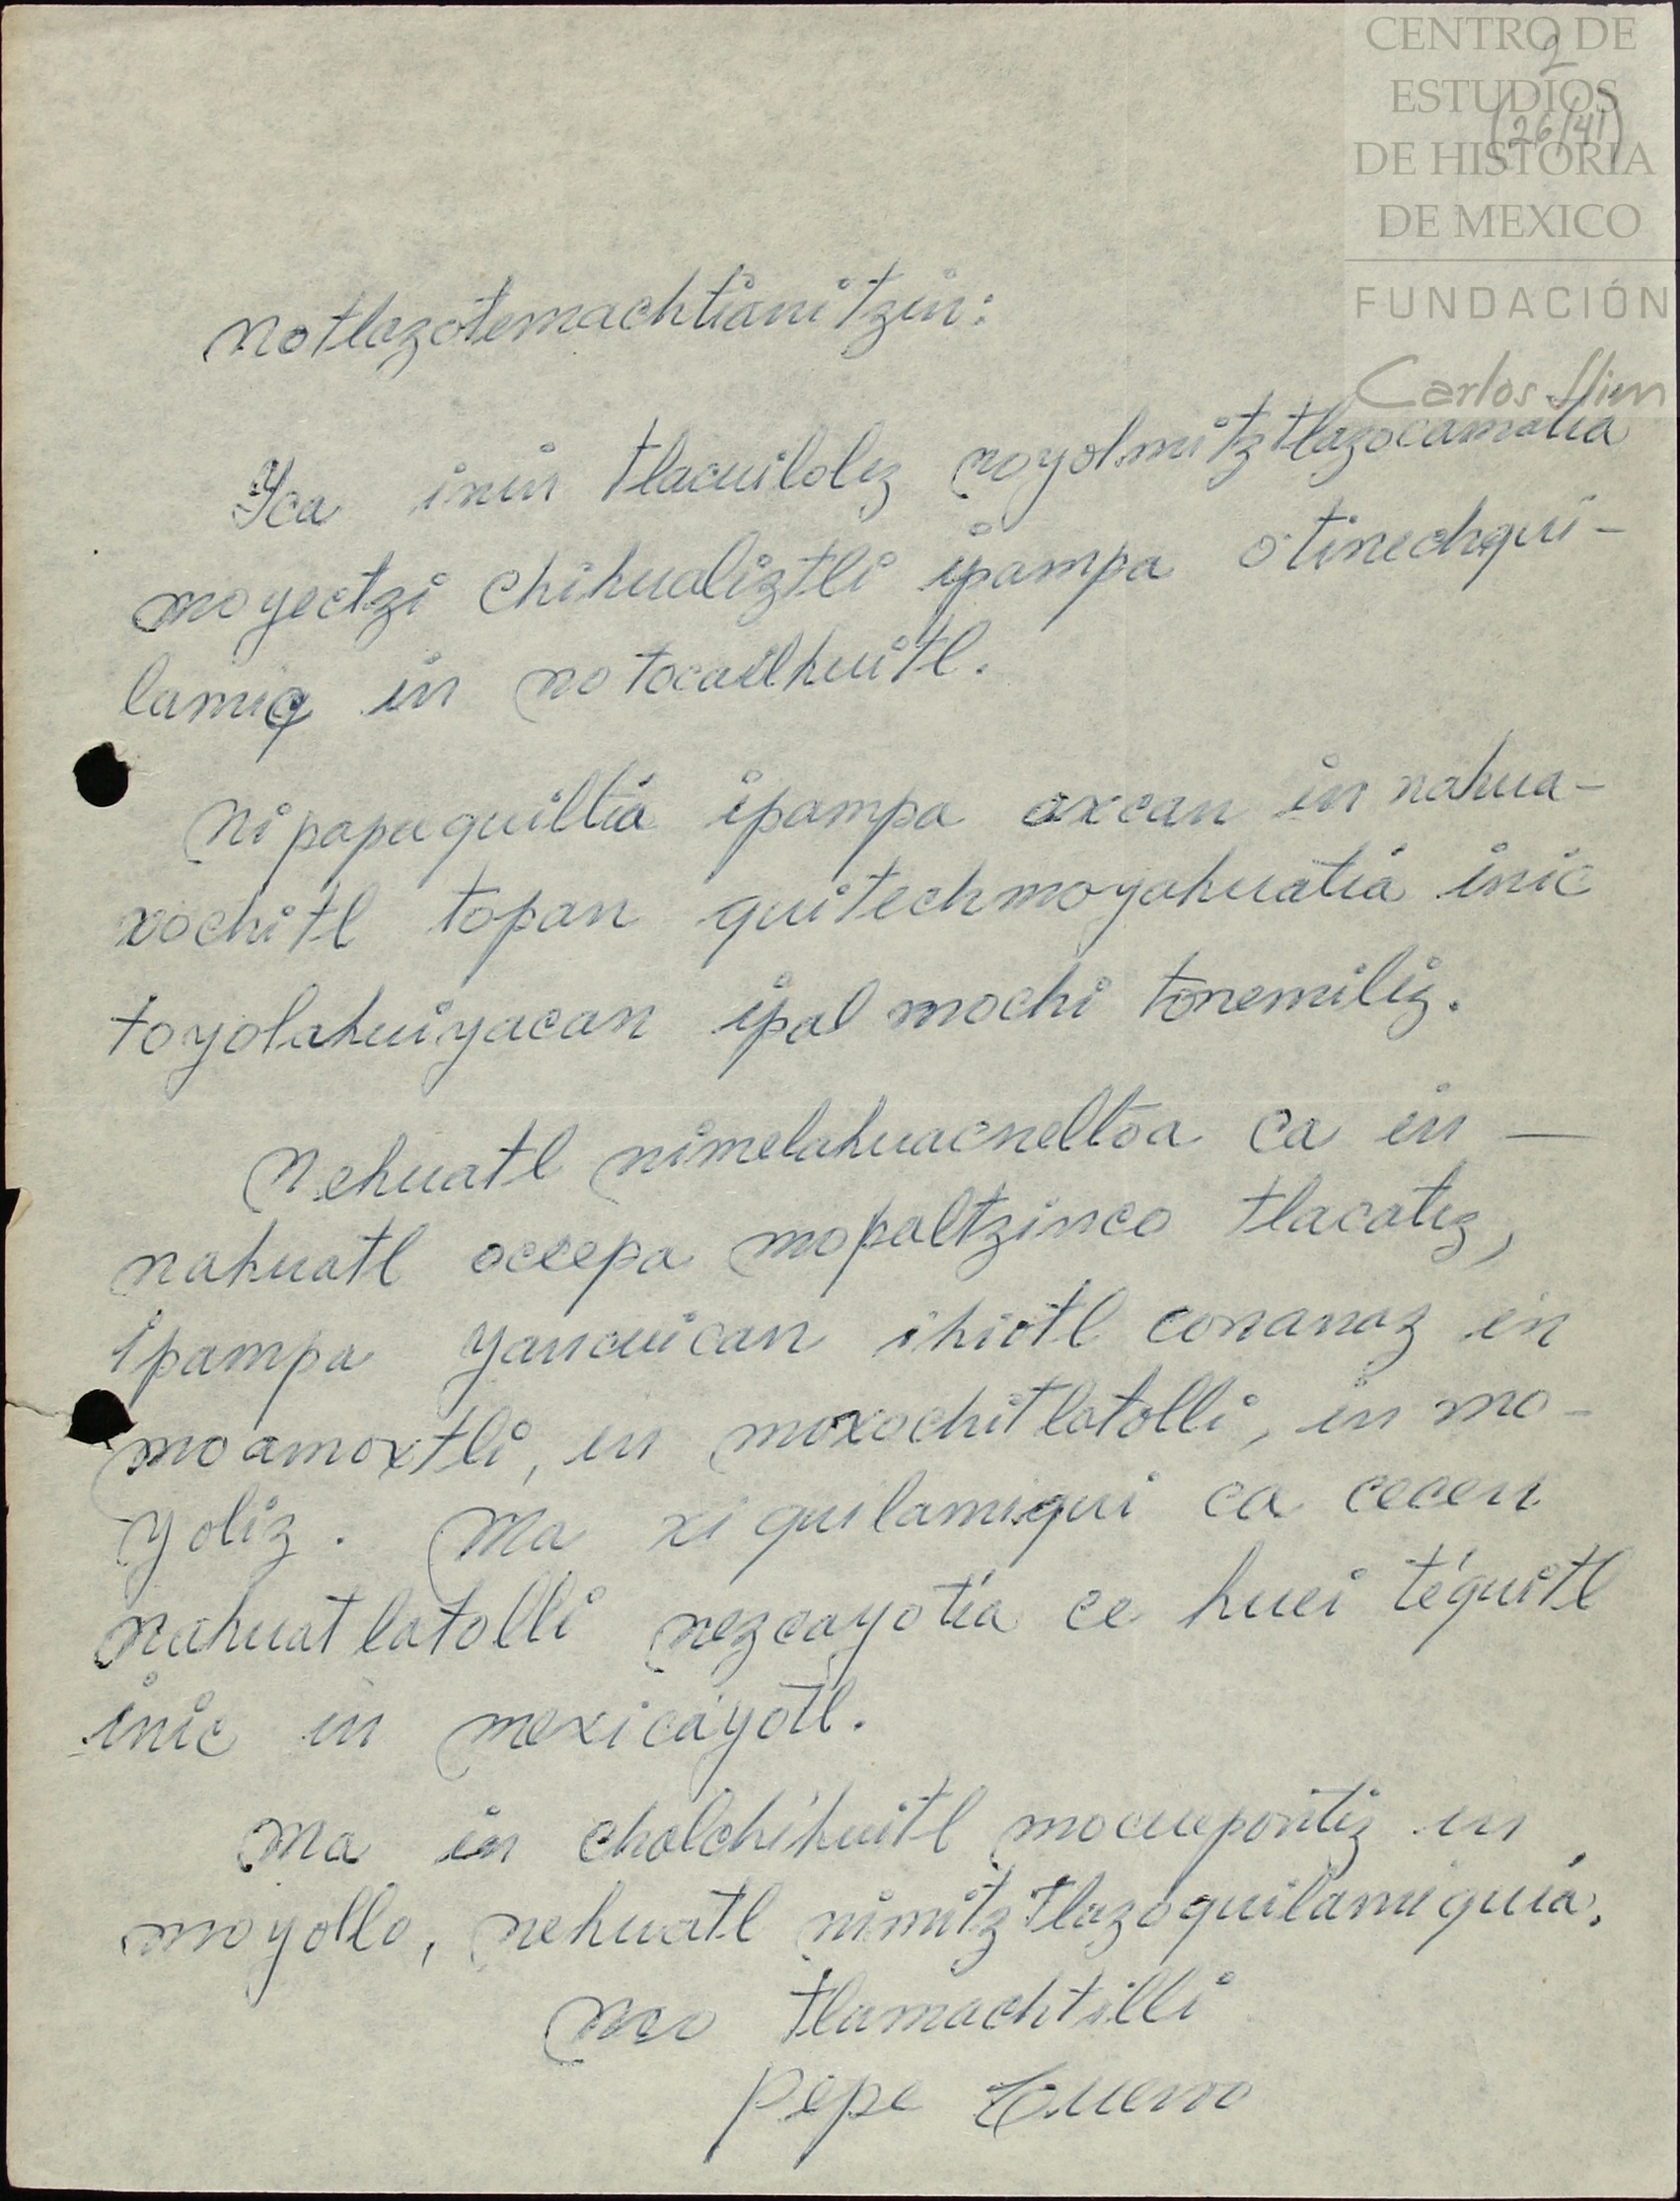 CENTRO DE
ESTUDIOS
DE HISTORIA
DE MEXICO
FUNDACIÓN
Carlos Slim
2
(26/41)
Notlazotemachtianitzin:
Yca inin tlacuiloliz noyolmitztlazocamatia
moyectzi chihualiztli ipampa otinechqui-
lamiq in notocailhuitl.
Nipapaquiltia ipampa axcan in nahua-
xochitl topan quitechmoyahuatia inic
toyolahuiyacan ipal mochi tonemiliz.
Nehuatl nimelahuacneltoa ca in —
nahuatl occepa mopaltzinco tlacatiz,
ipampa yancuican ihiotl conanaz in
moamoxtli, in moxochitlatolli, in mo-
yoliz. Ma xiquilamiqui ca cecen
nahuatlatolli nezcayotia ce huei téquitl
inic in mexicáyotl.
Ma in chalchíhuitl mocuepontiz in
moyollo, nehuatl nimitztlazoquilamiquia.
Mo tlamachtilli
Pepe Cuervo